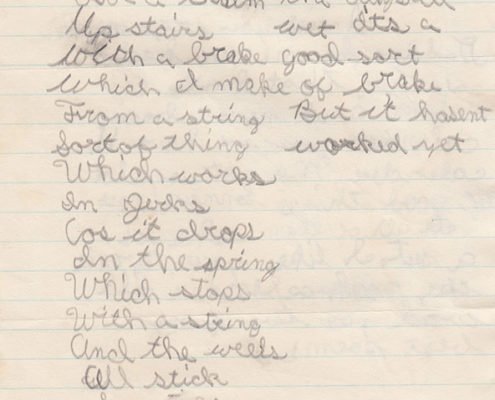 Up stairs wet Its a
With a brake good sort
Which I make of brake
From a string But it hasent
Sort of thing worked yet
Which works
In Jerks
Cos it drops
In the spring
Which stops
With a string
And the weels
All stick